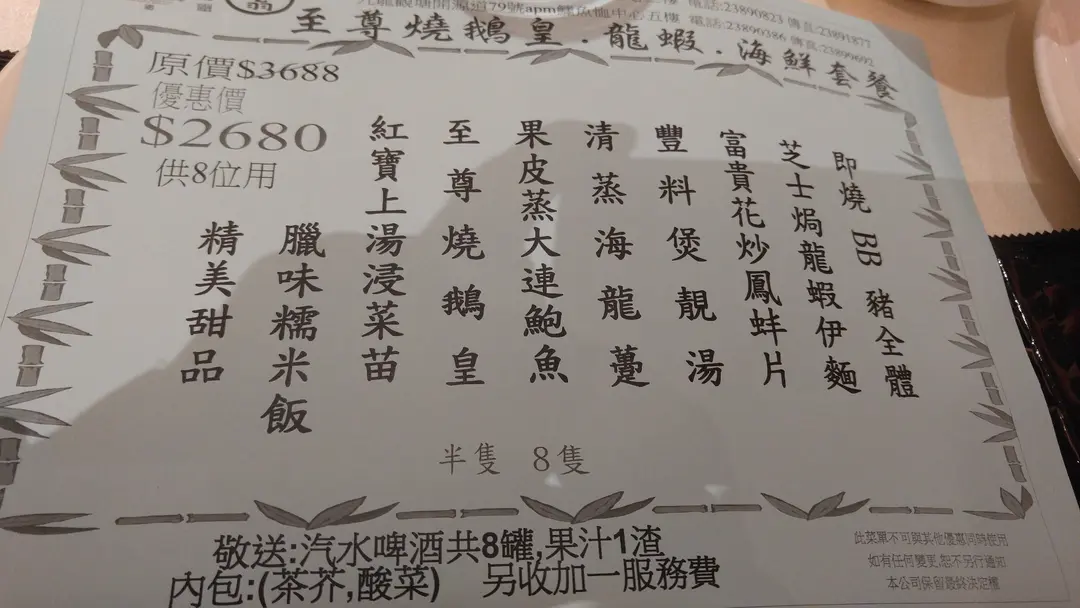 九龍觀塘開源道79號apm鱷魚恤中心五樓 電話:23890386 傳真:23890692
電話:23890823 傳真:23891877
至尊燒鵝皇.龍蝦.海鮮套餐
原價$3688
優惠價
$2680
供8位用
即燒BB豬全體
芝士焗龍蝦伊麵
富貴花炒鳳蚌片
豐料煲靚湯
清蒸海龍躉
果皮蒸大連鮑魚
至尊燒鵝皇
紅寶上湯浸菜苗
臘味糯米飯
精美甜品
半隻 8隻
敬送:汽水啤酒共8罐,果汁1渣
內包:(茶芥,酸菜) 另收加一服務費
此菜單不可與其他優惠同時使用
如有任何變更,恕不另行通知
本公司保留最終決定權